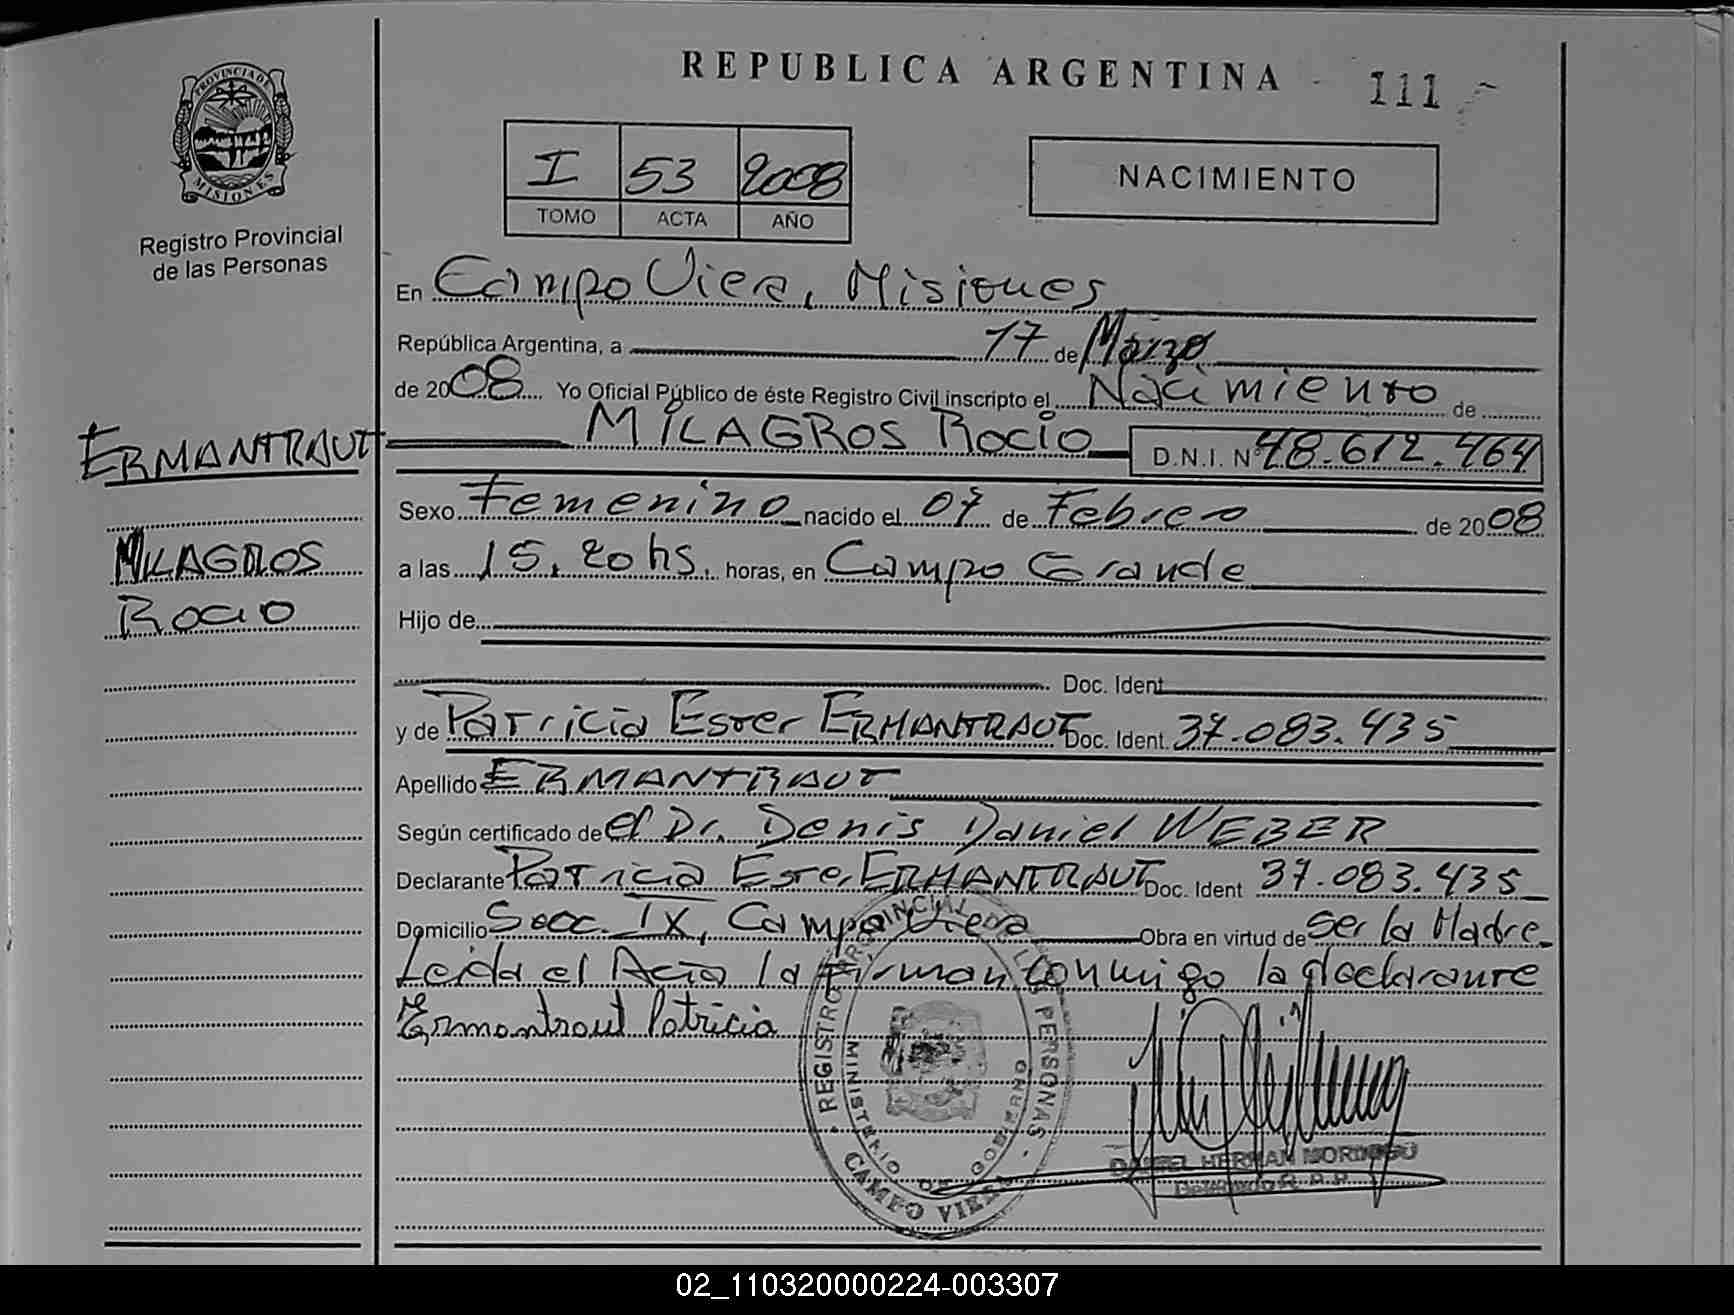 REPUBLICA ARGENTINA
111
PROVINCIA DE
MISIONES
Registro Provincial
de las Personas
I 53 2008
TOMO ACTA AÑO
NACIMIENTO
En Campo Viera, Misiones
República Argentina, a 17 de Marzo
de 2008 Yo Oficial Público de éste Registro Civil inscripto el Nacimiento de
MILAGROS ROCIO D.N.I. Nº 48.612.464
ERMANTRAUT
MILAGROS
ROCIO
Sexo Femenino nacido el 07 de Febrero de 2008
a las 15,20 hs. horas, en Campo Grande
Hijo de
Doc. Ident
y de Patricia Ester ERMANTRAUT Doc. Ident. 37.083.435
Apellido ERMANTRAUT
Según certificado de el Dr. Denis Daniel WEBER
Declarante Patricia Ester ERMANTRAUT Doc. Ident 37.083.435
Domicilio Secc. IX, Campo Viera Obra en virtud de ser la Madre
Leida el Acta la firman conmigo la declarante
Ermantraut Patricia
REGISTRO PROVINCIAL DE LAS PERSONAS
MINISTERIO DE GOBIERNO
CAMPO VIERA
DANIEL HERNAN
R. P. P.
02_110320000224-003307